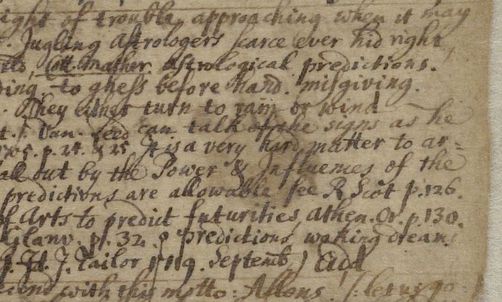 ight of trouble, approaching when it may
Jugling Astrologers scarce ever hid right
Cott Mather. Astrological predictions.
ding to ghess before hand. misgiving.
They either turn to rain or wind
t. 1. Dan. Leed can talk of the signs as he
p. 24. & 25. It is a very hard matter to ar=
all out by the Power & Influences of the
predictions are allowable see R Scot p. 126.
of Arts to predict futurities. Athen. Or. p 130.
Glanv. pt. 32. predictions, waking dreams
J. Tailor p 119. Septenb.)
with this motto: Allons. let us go